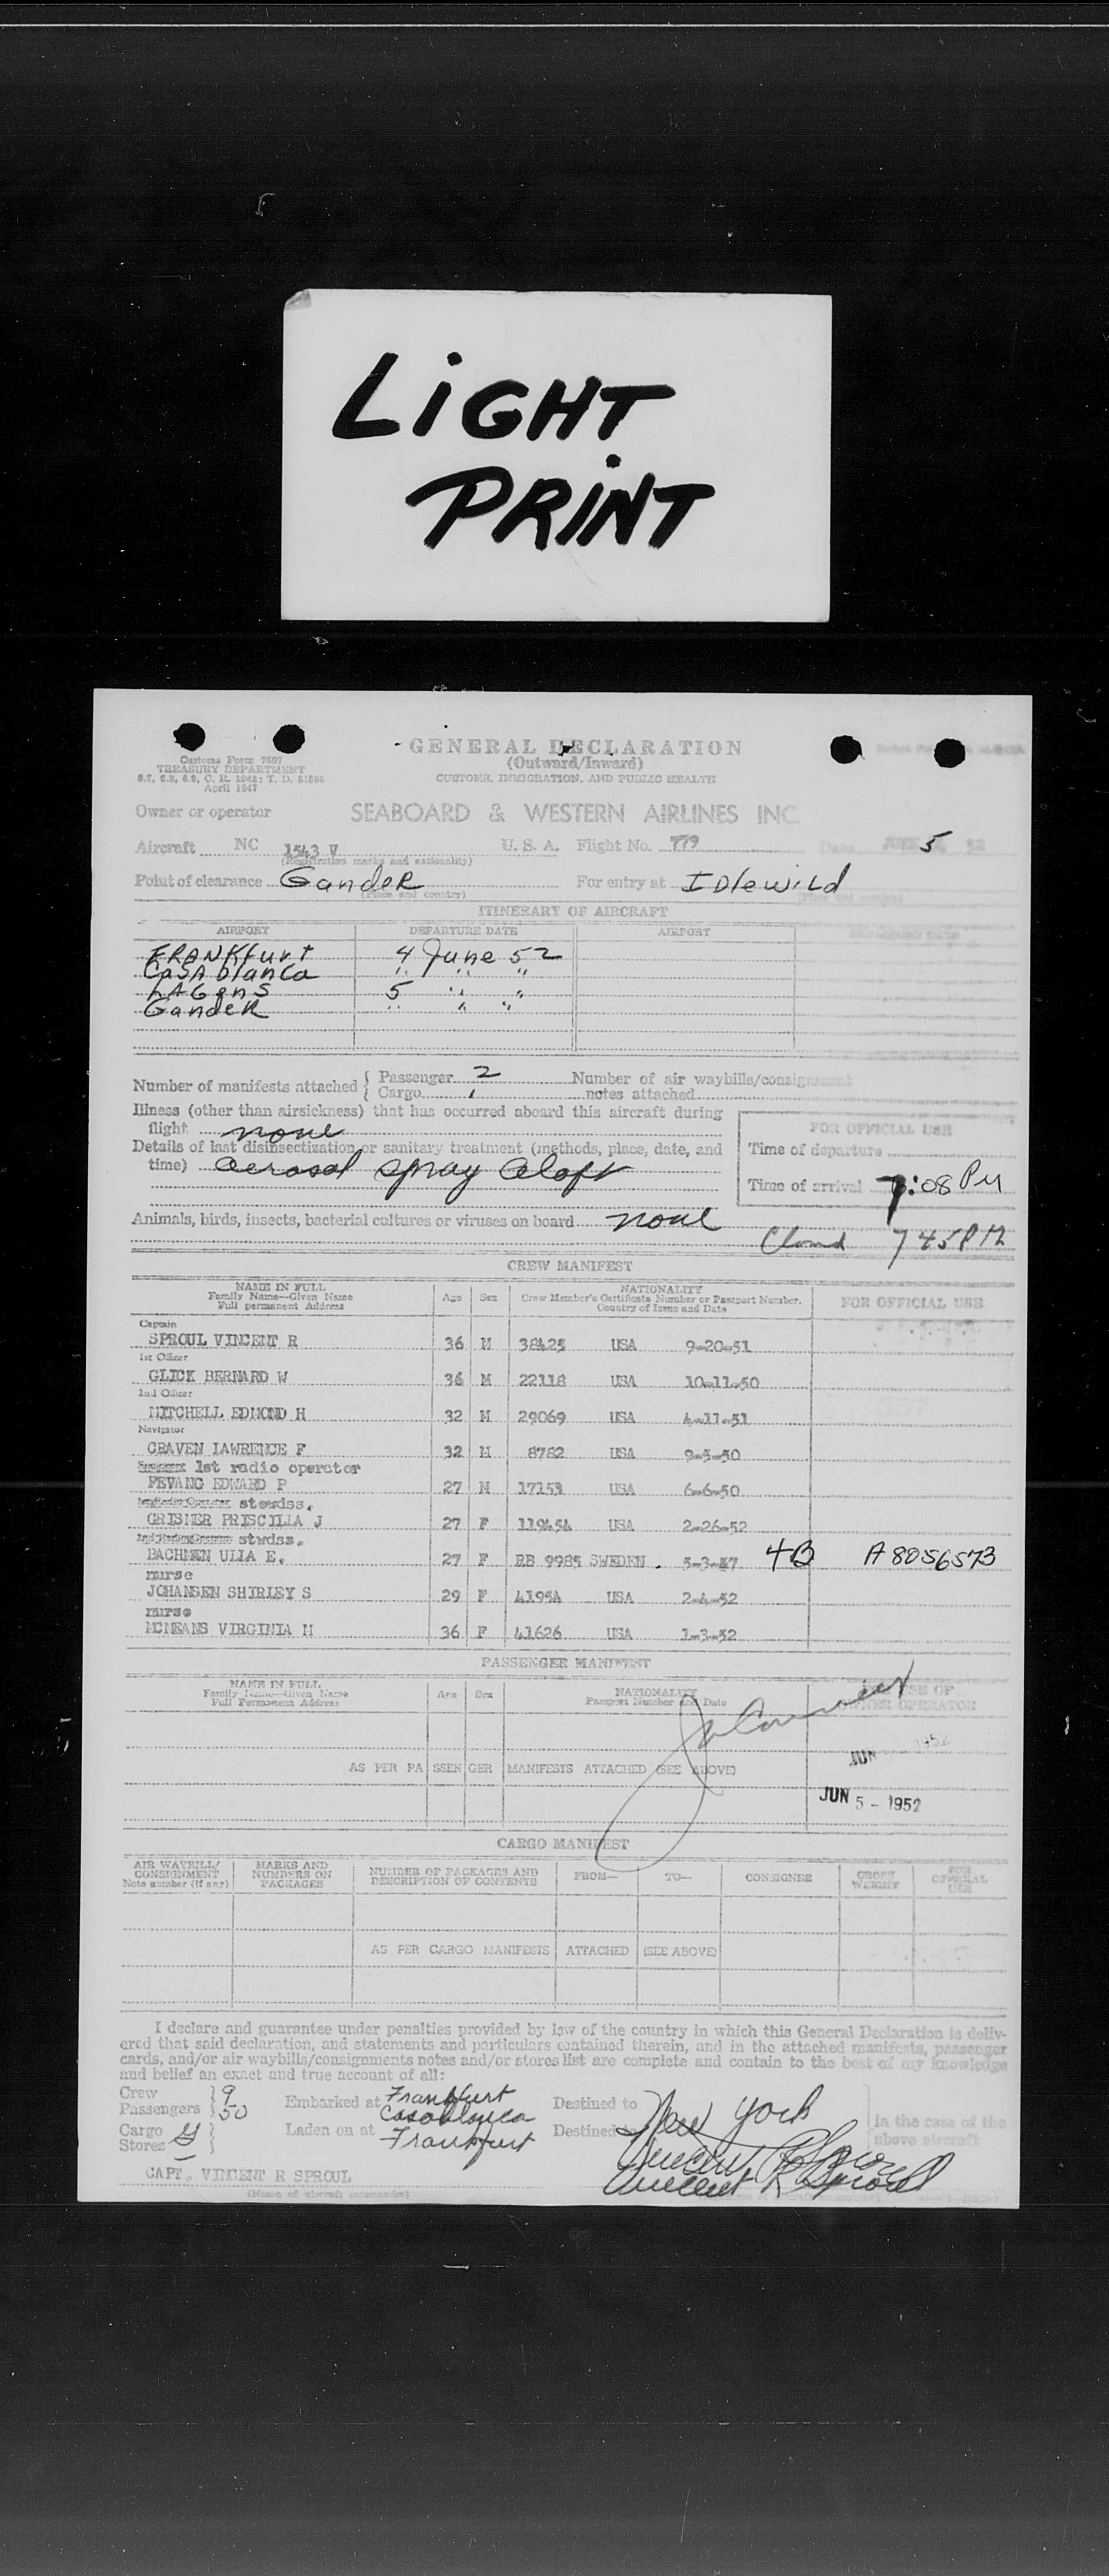 LiGHT
PRiNT
GENERAL DECLARATION
(Outward/Inward)
CUSTOMS, IMMIGRATION, AND PUBLIC HEALTH
Customs Form 7507
TREASURY DEPARTMENT
April 1947
Owner or operator SEABOARD & WESTERN AIRLINES INC.
Aircraft NC 1543 V U. S. A. Flight No. 779 Date JUNE 5 52
(Registration marks and nationality)
Point of clearance GandeR For entry at IDlewild
(Place and country)
ITINERARY OF AIRCRAFT
AIRPORT DEPARTURE DATE AIRPORT DEPARTURE DATE
FRANKfurt 4 June 52
CASAblanca " " "
LAGens 5 " "
GandeR " " "
Number of manifests attached { Passenger 2 Number of air waybills/consignment
{ Cargo 1 notes attached
Illness (other than airsickness) that has occurred aboard this aircraft during
flight none
FOR OFFICIAL USE
Details of last disinsectization or sanitary treatment (methods, place, date, and
time) aerosol spray aloft
Time of departure
Time of arrival 7:08 PM
Animals, birds, insects, bacterial cultures or viruses on board none
7 45 PM
CREW MANIFEST
NAME IN FULL
Family Name—Given Name
Full permanent Address
Age Sex
NATIONALITY
Crew Member's Certificate Number or Passport Number,
Country of Issue and Date
FOR OFFICIAL USE
Captain
SPROUL VINCENT R 36 M 38425 USA 9-20-51
1st Officer
GLICK BERNARD W 36 M 22118 USA 10-11-50
2nd Officer
MITCHELL EDMOND H 32 M 29069 USA 4-11-51
Navigator
CRAVEN LAWRENCE F 32 M 8782 USA 9-5-50
1st radio operator
FEVANG EDWARD P 27 M 17153 USA 6-6-50
stewdss.
GRISMER PRISCILLA J 27 F 119454 USA 2-26-52
stwdss.
BACHMEN ULIA E. 27 F RB 9985 SWEDEN . 5-3-47 4B A8056573
nurse
JOHANSEN SHIRLEY S 29 F 41954 USA 2-4-52
nurse
MCMEANS VIRGINIA M 36 F 41626 USA 1-3-52
PASSENGER MANIFEST
NAME IN FULL
Family Name—Given Name
Full Permanent Address
Age Sex
NATIONALITY
Passport Number and Date
USE OF
OWNER OPERATOR
JUN 1952
AS PER PASSENGER MANIFESTS ATTACHED (SEE ABOVE)
JUN 5 - 1952
CARGO MANIFEST
AIR WAYBILL/
CONSIGNMENT
Note number (if any)
MARKS AND
NUMBERS ON
PACKAGES
NUMBER OF PACKAGES AND
DESCRIPTION OF CONTENTS
FROM— TO— CONSIGNEE
GROSS
WEIGHT
FOR
OFFICIAL
USE
AS PER CARGO MANIFESTS ATTACHED (SEE ABOVE)
I declare and guarantee under penalties provided by law of the country in which this General Declaration is deliv-
ered that said declaration, and statements and particulars contained therein, and in the attached manifests, passenger
cards, and/or air waybills/consignments notes and/or stores list are complete and contain to the best of my knowledge
and belief an exact and true account of all:
Crew 9
Passengers 50
Embarked at Frankfurt
Casablanca
Destined to New York
Cargo
Stores
Laden on at Frankfurt
Destined
in the case of the
above aircraft
Vincent R Sproul
CAPT. VINCENT R SPROUL
(Name of aircraft commander)